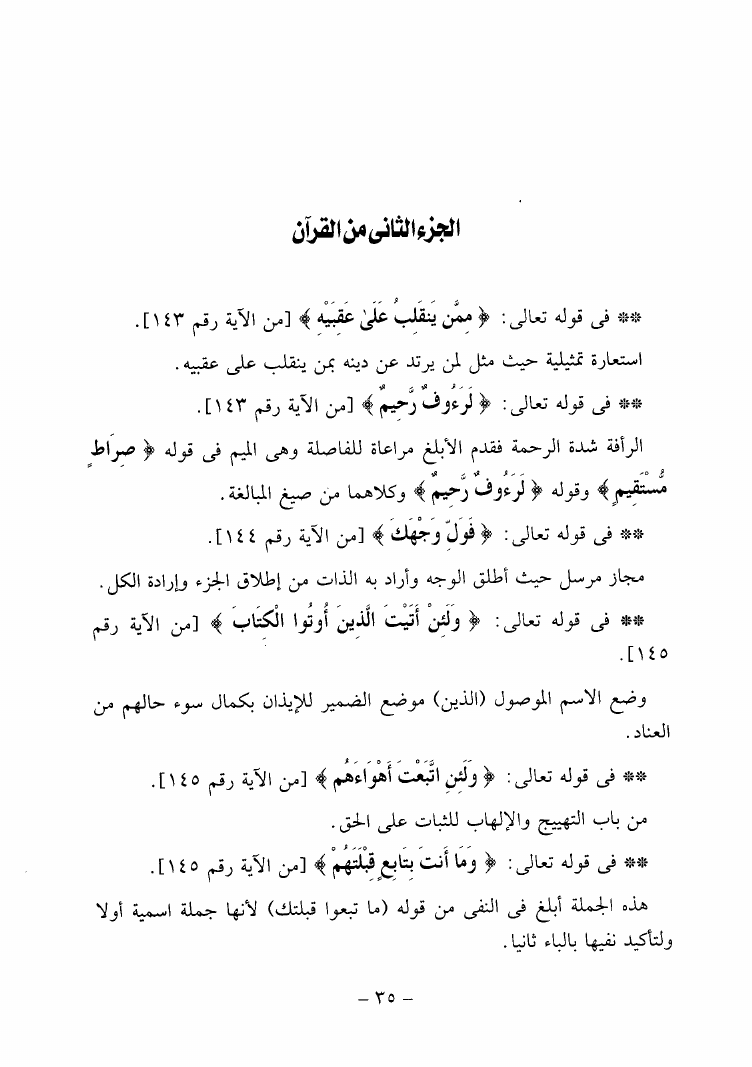 الجزء الثانى من القرآن
** فى قوله تعالى: ﴿ مِمَّن يَنقَلِبُ عَلَىٰ عَقِبَيْهِ ﴾ [من الآية رقم ١٤٣].
استعارة تمثيلية حيث مثل لمن يرتد عن دينه بمن ينقلب على عقبيه.
** فى قوله تعالى: ﴿ لَرَءُوفٌ رَّحِيمٌ ﴾ [من الآية رقم ١٤٣].
الرأفة شدة الرحمة فقدم الأبلغ مراعاة للفاصلة وهى الميم فى قوله ﴿ صِرَاطٍ
مُّسْتَقِيمٍ ﴾ وقوله ﴿ لَرَءُوفٌ رَّحِيمٌ ﴾ وكلاهما من صيغ المبالغة.
** فى قوله تعالى: ﴿ فَوَلِّ وَجْهَكَ ﴾ [من الآية رقم ١٤٤].
مجاز مرسل حيث أطلق الوجه وأراد به الذات من إطلاق الجزء وإرادة الكل.
** فى قوله تعالى: ﴿ وَلَئِنْ أَتَيْتَ الَّذِينَ أُوتُوا الْكِتَابَ ﴾ [من الآية رقم
١٤٥].
وضع الاسم الموصول (الذين) موضع الضمير للإيذان بكمال سوء حالهم من
العناد.
** فى قوله تعالى: ﴿ وَلَئِنِ اتَّبَعْتَ أَهْوَاءَهُم ﴾ [من الآية رقم ١٤٥].
من باب التهييج والإلهاب للثبات على الحق.
** فى قوله تعالى: ﴿ وَمَا أَنتَ بِتَابِعٍ قِبْلَتَهُمْ ﴾ [من الآية رقم ١٤٥].
هذه الجملة أبلغ فى النفى من قوله (ما تبعوا قبلتك) لأنها جملة اسمية أولا
ولتأكيد نفيها بالباء ثانيا.
– ٣٥ –